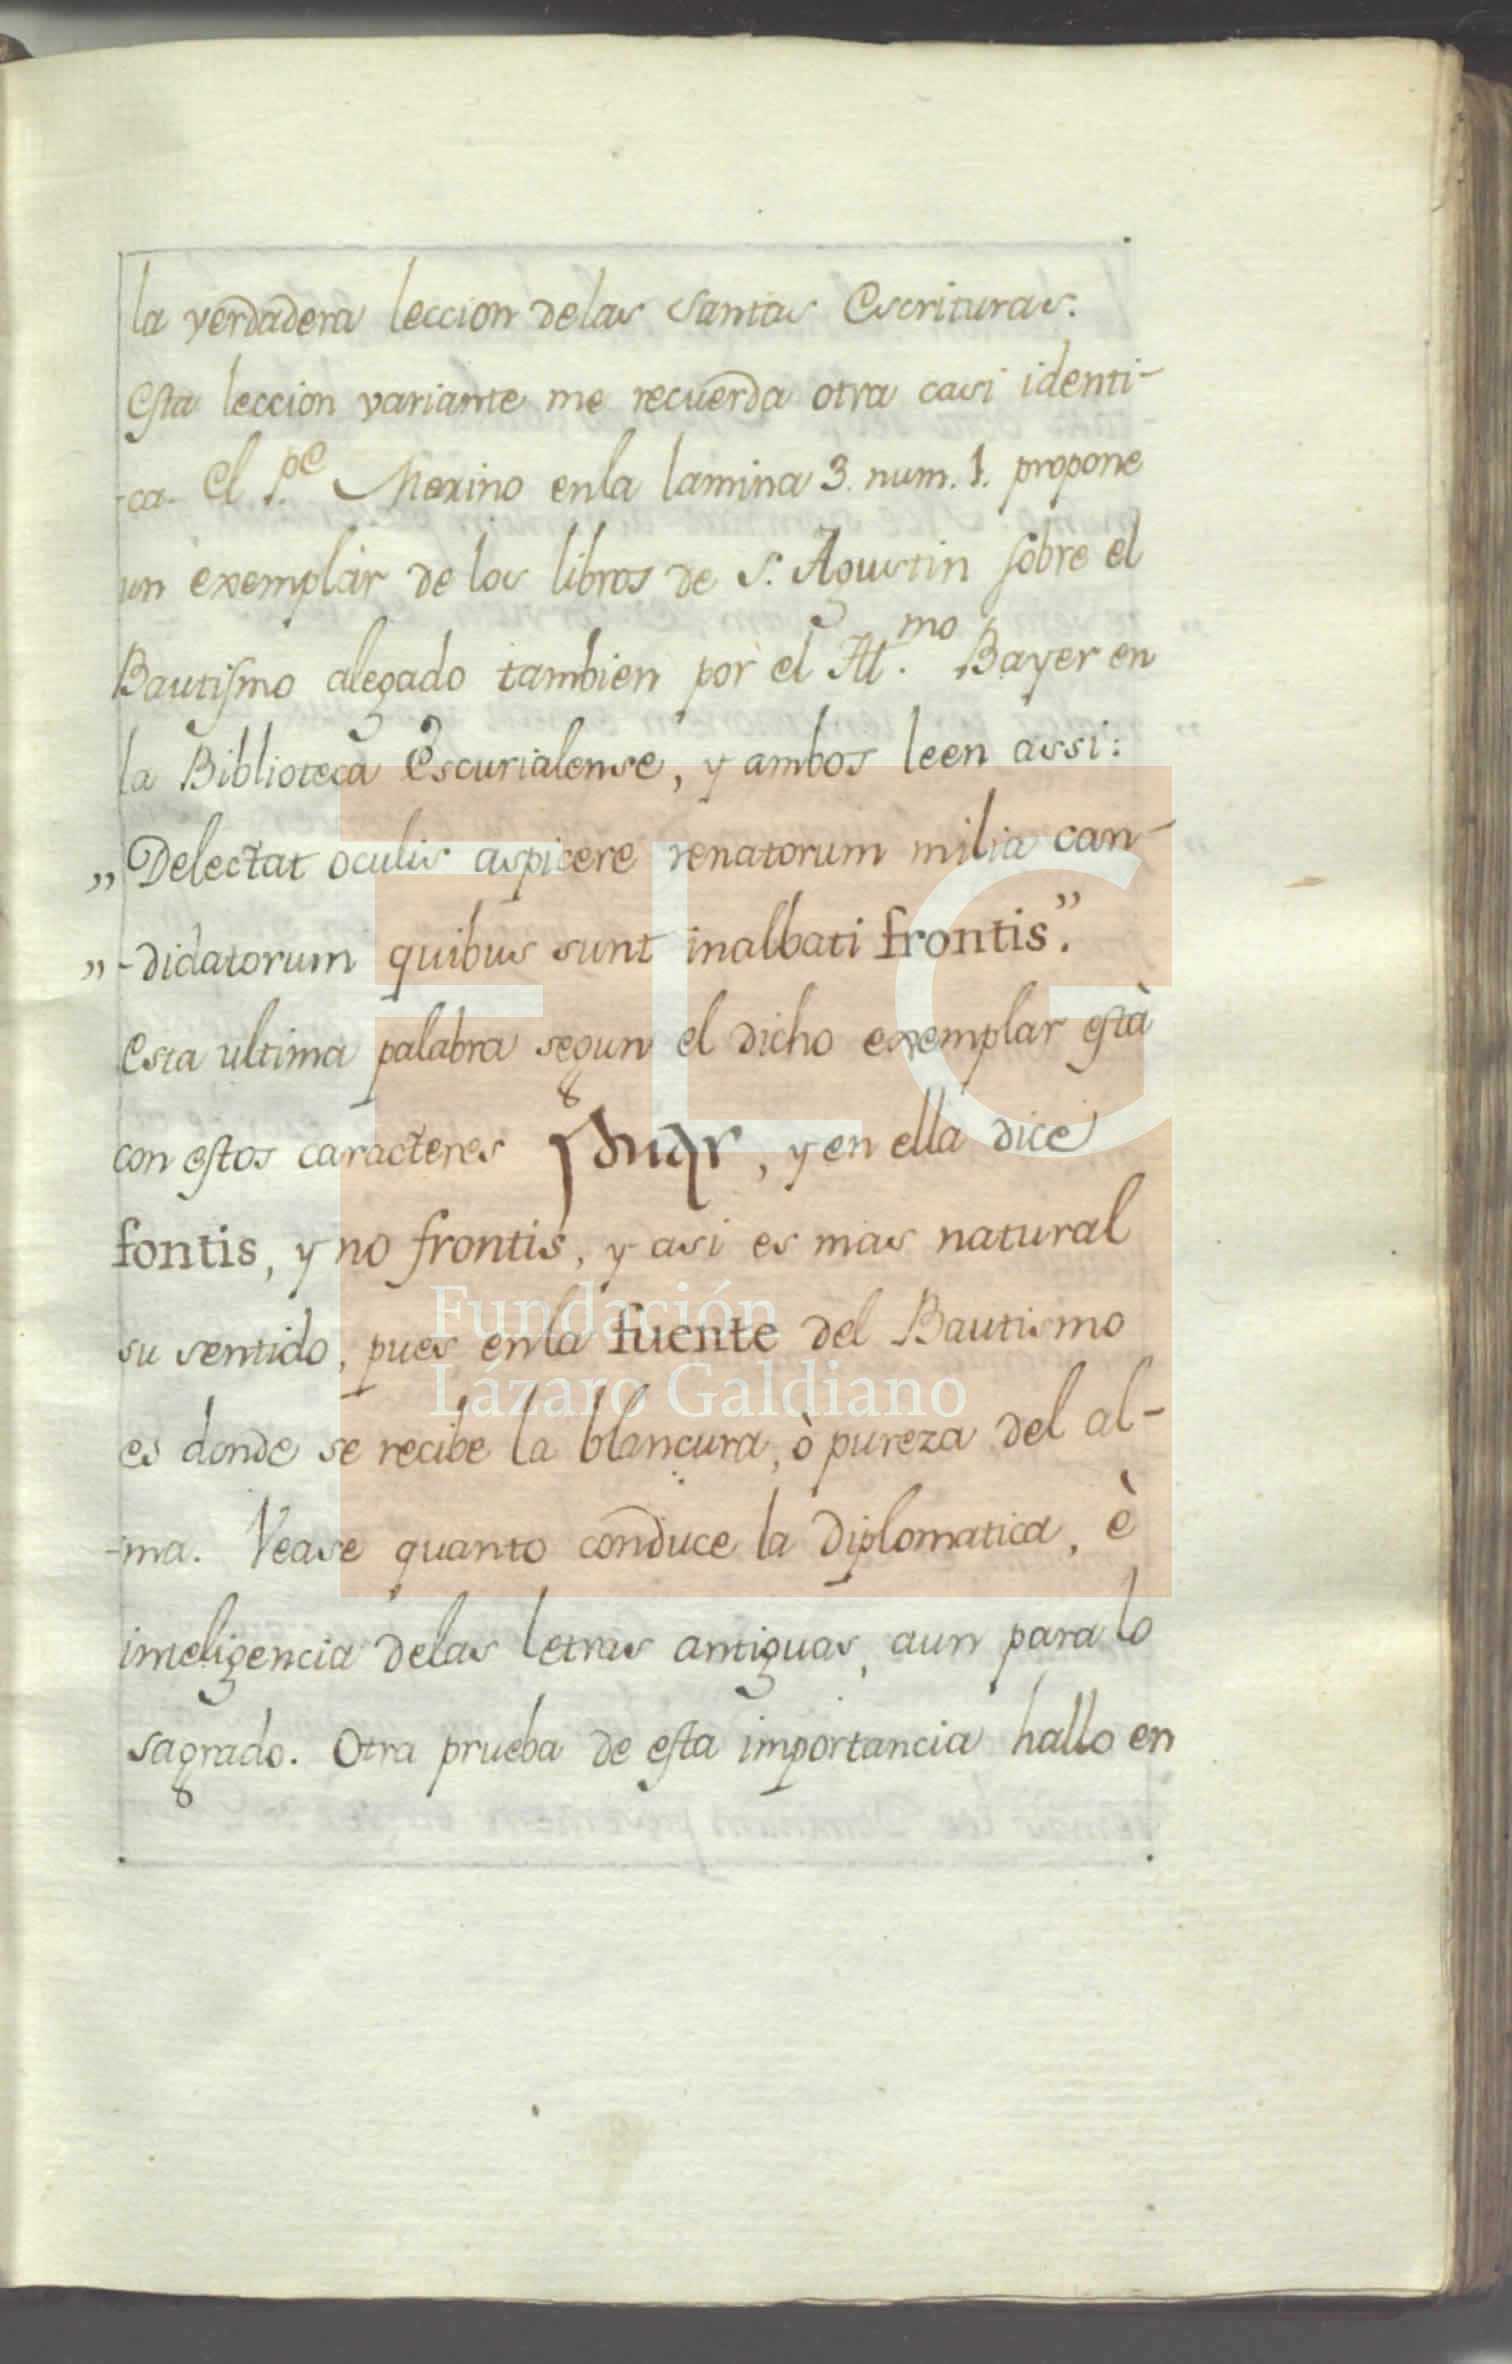 la verdadera leccion delas santas Escrituras.
Esta leccion variante me recuerda otra casi identi-
-ca. El P.e Merino enla lamina 3. num. 1. propone
un exemplar de los libros de S. Agustin sobre el
Bautismo alegado tambien por el Bayer en
la Biblioteca Escurialense, y ambos leen assi:
„ Delectat oculis aspicere renatorum milia can-
„ -didatorum quibus sunt inalbati frontis.”
Esta ultima palabra segun el dicho exemplar està
con estos caracteres , y en ella dice
fontis, y no frontis, y asi es mas natural
su sentido, pues enla fuente del Bautismo
es donde se recibe la blancura, ò pureza del al-
-ma. Vease quanto conduce la Diplomatica, è
inteligencia delas letras antiguas, aun para lo
sagrado. Otra prueba de esta importancia hallo en
FLG
Fundación
Lázaro Galdiano